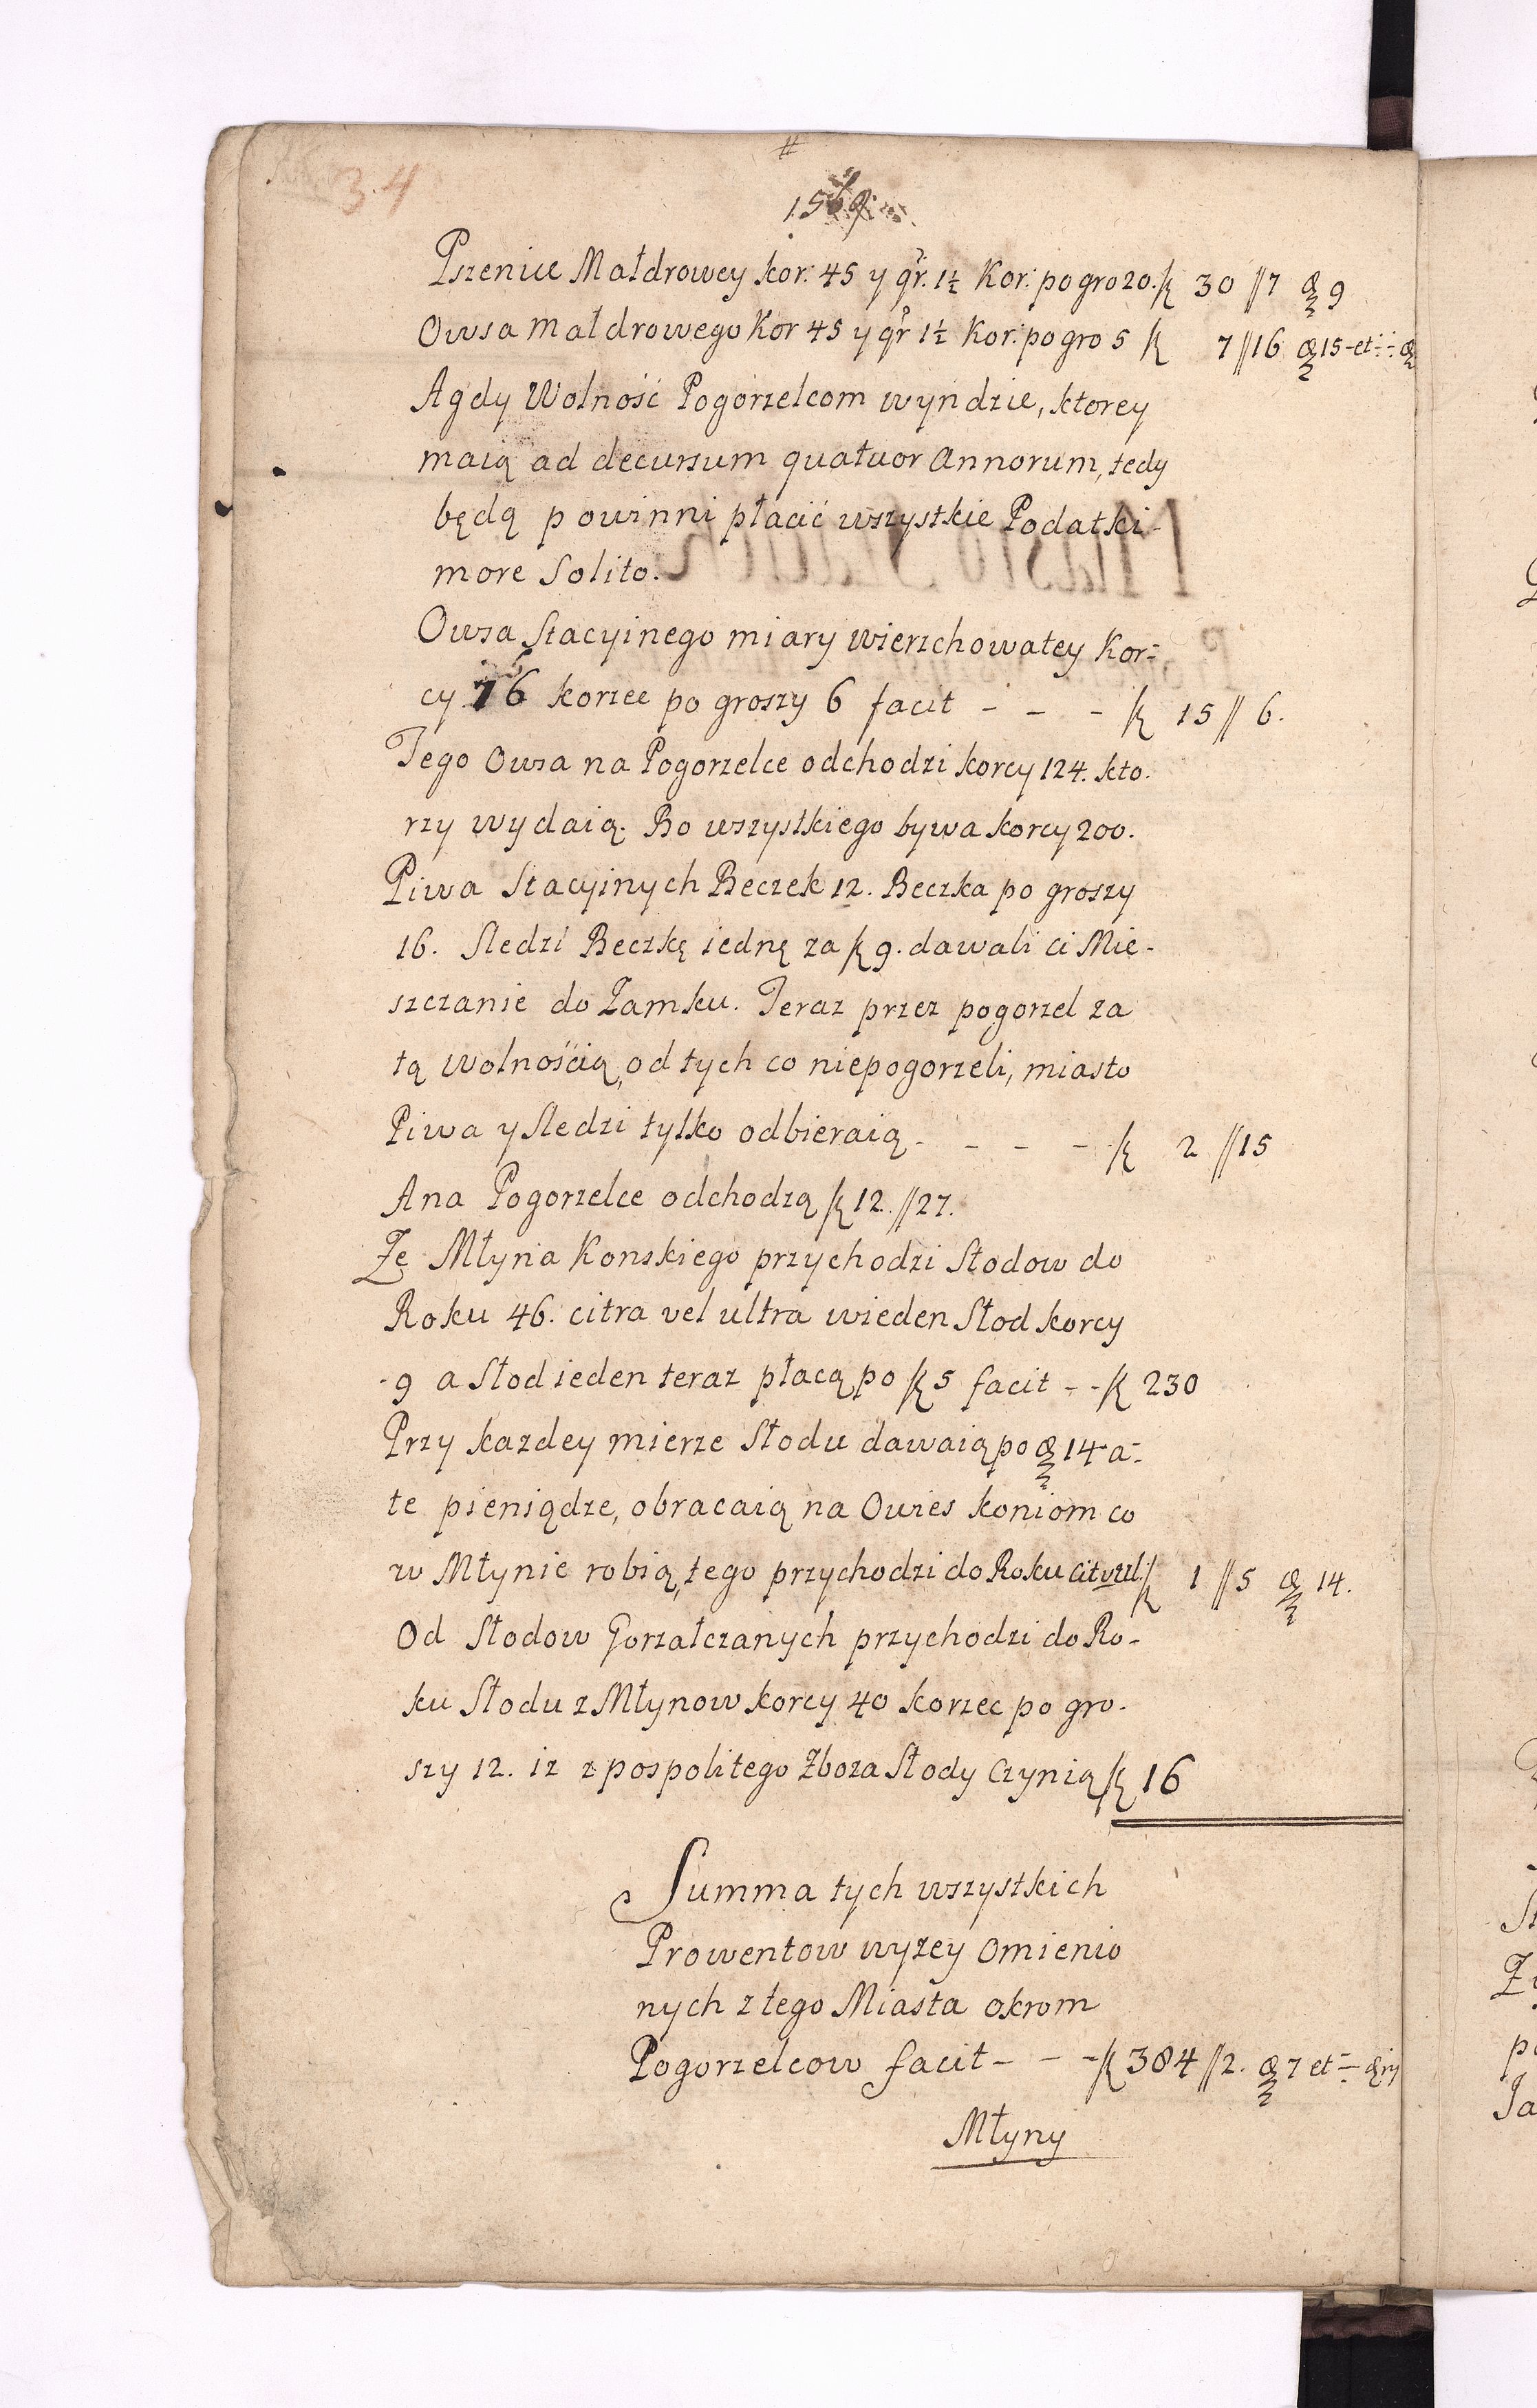 34
#
1569
Pszenice Małdrowey kor: 45 y qr. 1½ Kor: po gro 20. fl 30 //7 ꝺ 9
Owsa małdrowego Kor 45 y qr 1½ Kor: po gro 5 fl 7 //16 ꝺ 15 et
A gdy Wolność Pogorzelcom wyndzie, ktorey
maią ad decursum quatuor Annorum, tedy
będą powinni płacić wszystkie Podatki
more Solito.
Owsa Stacyinego miary wierzchowatey Kor-
cy 76 korzec po groszy 6 facit - - - fl 15 // 6.
Tego Owsa na Pogorzelce odchodzi korcy 124. kto.
rzy wydaią. Bo wszystkiego bywa korcy 200.
Piwa Stacyinych Beczek 12. Beczka po groszy
16. Sledzi Beczkę iednę za fl 9. dawali ci Mie-
szczanie do Zamku. Teraz przez pogorzel za
tą wolnością, od tych co niepogorzeli, miasto
Piwa y Sledzi tylko odbieraią - - - - fl 2 //15
A na Pogorzelce odchodzą fl 12. //27.
Ze Młyna Konskiego przychodzi Słodow do
Roku 46. citra vel ultra wieden Słod korcy
9 a Słod ieden teraz płacą po fl 5 facit - - fl 230
Przy kazdey mierze Słodu dawaią po ꝺ 14 a-
te pieniądze, obracaią na Owies koniom co
w Młynie robią, tego przychodzi do Roku cit vul: fl 1 //5 ꝺ 14.
Od Słodow Gorzałczanych przychodzi do Ro-
ku Słodu z Młynow korcy 40 korzec po gro-
szy 12. iz z pospolitego Zboza Słody Czynią fl 16
Summa tych wszystkich
Prowentow wyzey omienio
nych z tego Miasta okrom
Pogorzelcow facit - - - fl 384 //2. ꝺ 7 et
Młyny